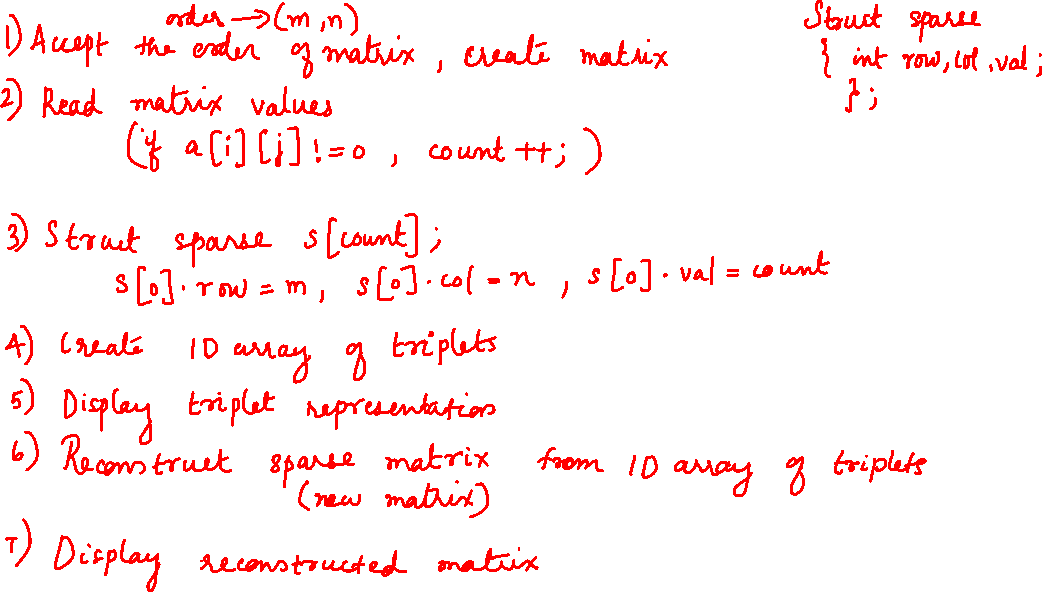 order → (m, n)
1) Accept the order of matrix, create matrix
2) Read matrix values
(if a[i][j] != 0, count ++; )
3) Struct sparse s[count];
s[0].row = m, s[0].col = n, s[0].val = count
4) Create 1D array of triplets
5) Display triplet representation
6) Reconstruct sparse matrix from 1D array of triplets
(new matrix)
7) Display reconstructed matrix
Struct sparse
{ int row, col, val;
};